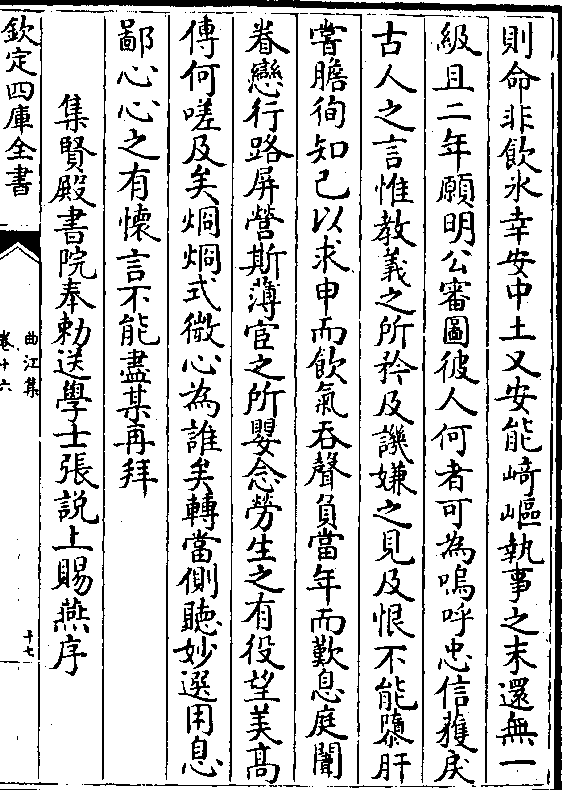 則命非飲氷幸安中土又安能﨑嶇執事之末還無一
級且二年願明公審圖彼人何者可為嗚呼忠信獲戾
古人之言惟教義之所矜及譏嫌之見及恨不能隳肝
嘗膽徇知己以求申而飲氣吞聲負當年而歎息庭闈
眷戀行路屏營斯薄宦之所嬰念勞生之有役望美髙
傅何嗟及矣烱烱式微心為誰矣轉當側聽妙選用息
鄙心心之有懐言不能盡某再拜
集賢殿書院奉勅送學士張說上賜燕序
欽定四庫全書
曲江集
卷十六
十七